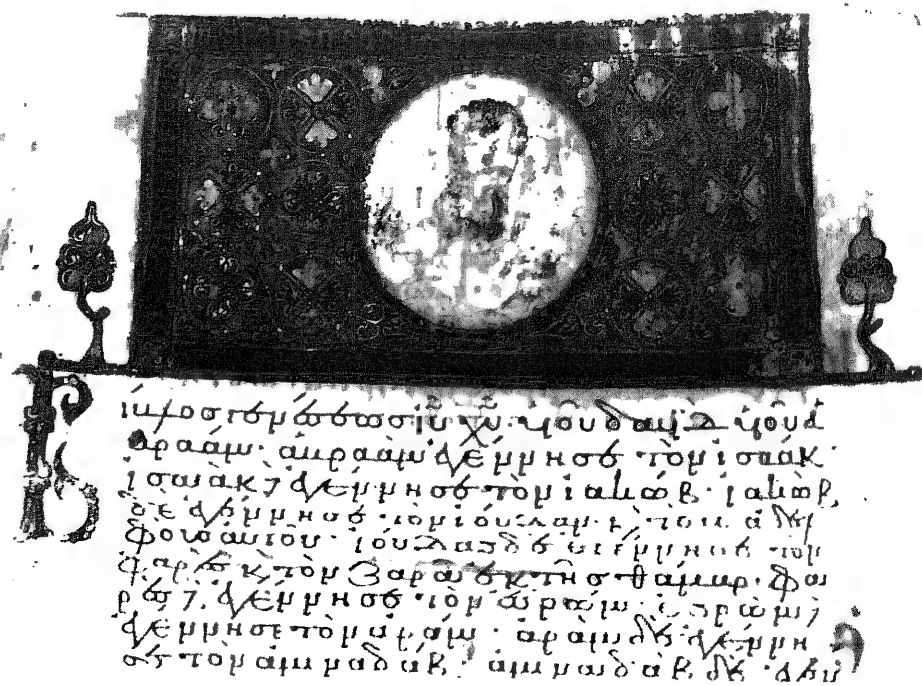 Βίβλος γενέσεως ἰῦ χῦ υἱοῦ δαυὶδ υἱοῦ ἀ
βραάμ · ἀβραὰμ ἐγέννησε τὸν ἰσαάκ ·
ἰσαὰκ δὲ ἐγέννησε τὸν ἰακώβ · ἰακὼβ
δὲ ἐγέννησε τὸν ἰούδαν · κ τοὺς ἀδελ
φοὺς αὐτοῦ · ἰούδας δὲ ἐγέννησε τὸν
φαρὲς κ τὸν ζαρὰ ἐκ τῆς θάμαρ · φα
ρὲς δὲ ἐγέννησε τὸν ἐσρώμ · ἐσρὼμ δὲ
ἐγέννησε τὸν ἀράμ · ἀρὰμ δὲ ἐγέννη
σε τὸν ἀμιναδάβ · ἀμιναδὰβ δὲ ἐγέν